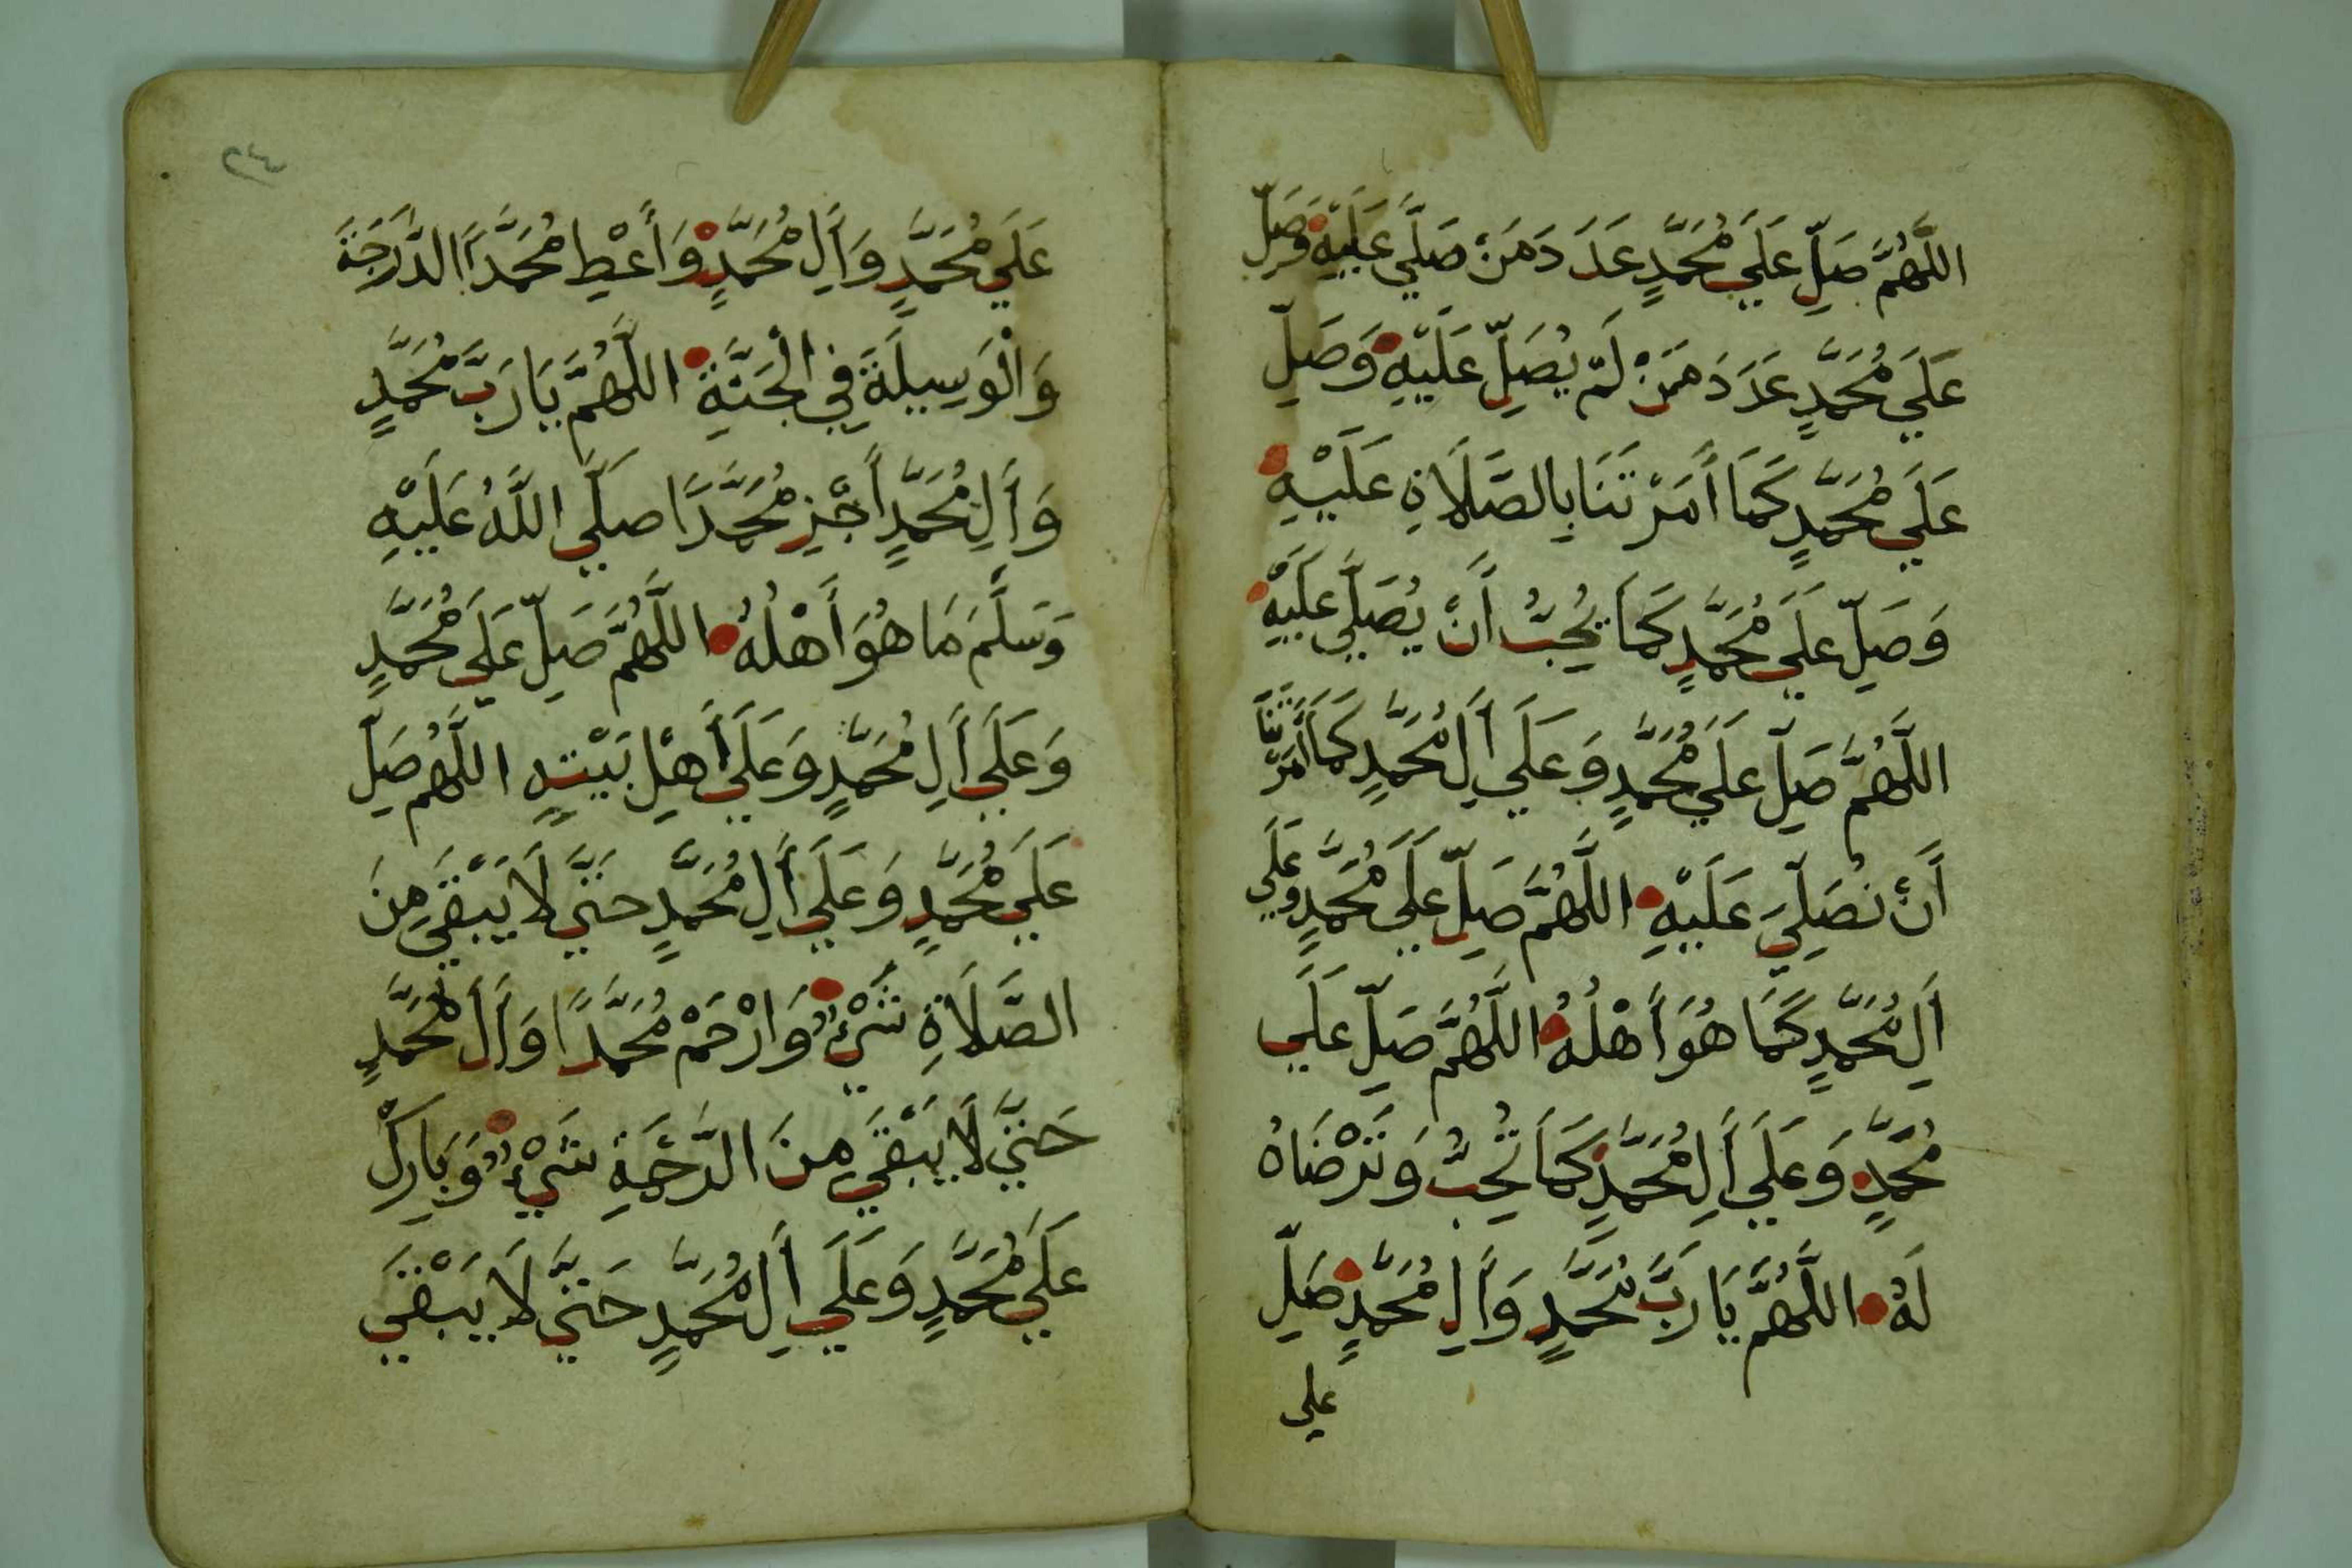 اللَّهُمَّ صَلِّ عَلَي مُحَمَّدٍ عَدَدَ مَنْ صَلَّي عَلَيْهِ وَصَلِّ
عَلَي مُحَمَّدٍ عَدَدَ مَنْ لَمْ يُصَلِّ عَلَيْهِ وَصَلِّ
عَلَي مُحَمَّدٍ كَمَا أَمَرْتَنَا بِالصَّلَاةِ عَلَيْهِ
وَصَلِّ عَلَي مُحَمَّدٍ كَمَا يُحِبُّ أَنْ يُصَلَّي عَلَيْهِ
اللَّهُمَّ صَلِّ عَلَي مُحَمَّدٍ وَعَلَي أَلِ مُحَمَّدٍ كَمَا أَمَرْتَنَا
أَنْ نُصَلِّيَ عَلَيْهِ اللَّهُمَّ صَلِّ عَلَي مُحَمَّدٍ وَعَلَي
أَلِ مُحَمَّدٍ كَمَا هُوَ أَهْلُهُ اللَّهُمَّ صَلِّ عَلَي
مُحَمَّدٍ وَعَلَي أَلِ مُحَمَّدٍ كَمَا تُحِبُّ وَتَرْضَاهُ
لَهُ اللَّهُمَّ يَا رَبَّ مُحَمَّدٍ وَأَلِ مُحَمَّدٍ صَلِّ
علي
٢٤
عَلَي مُحَمَّدٍ وَأَلِ مُحَمَّدٍ وَأَعْطِ مُحَمَّدًا الدَّرَجَةَ
وَالْوَسِيلَةَ فِي الْجَنَّةِ اللَّهُمَّ يَا رَبَّ مُحَمَّدٍ
وَأَلِ مُحَمَّدٍ أَجْزِ مُحَمَّدًا صَلَّي اللَّهُ عَلَيْهِ
وَسَلَّمَ مَا هُوَ أَهْلُهُ اللَّهُمَّ صَلِّ عَلَي مُحَمَّدٍ
وَعَلَي أَلِ مُحَمَّدٍ وَعَلَي أَهْلِ بَيْتِهِ اللَّهُمَّ صَلِّ
عَلَي مُحَمَّدٍ وَعَلَي أَلِ مُحَمَّدٍ حَتَّي لَا يَبْقَي مِنَ
الصَّلَاةِ شَيْءٌ وَارْحَمْ مُحَمَّدًا وَأَلَ مُحَمَّدٍ
حَتَّي لَا يَبْقَي مِنَ الرَّحْمَةِ شَيْءٌ وَبَارِكْ
عَلَي مُحَمَّدٍ وَعَلَي أَلِ مُحَمَّدٍ حَتَّي لَا يَبْقَي